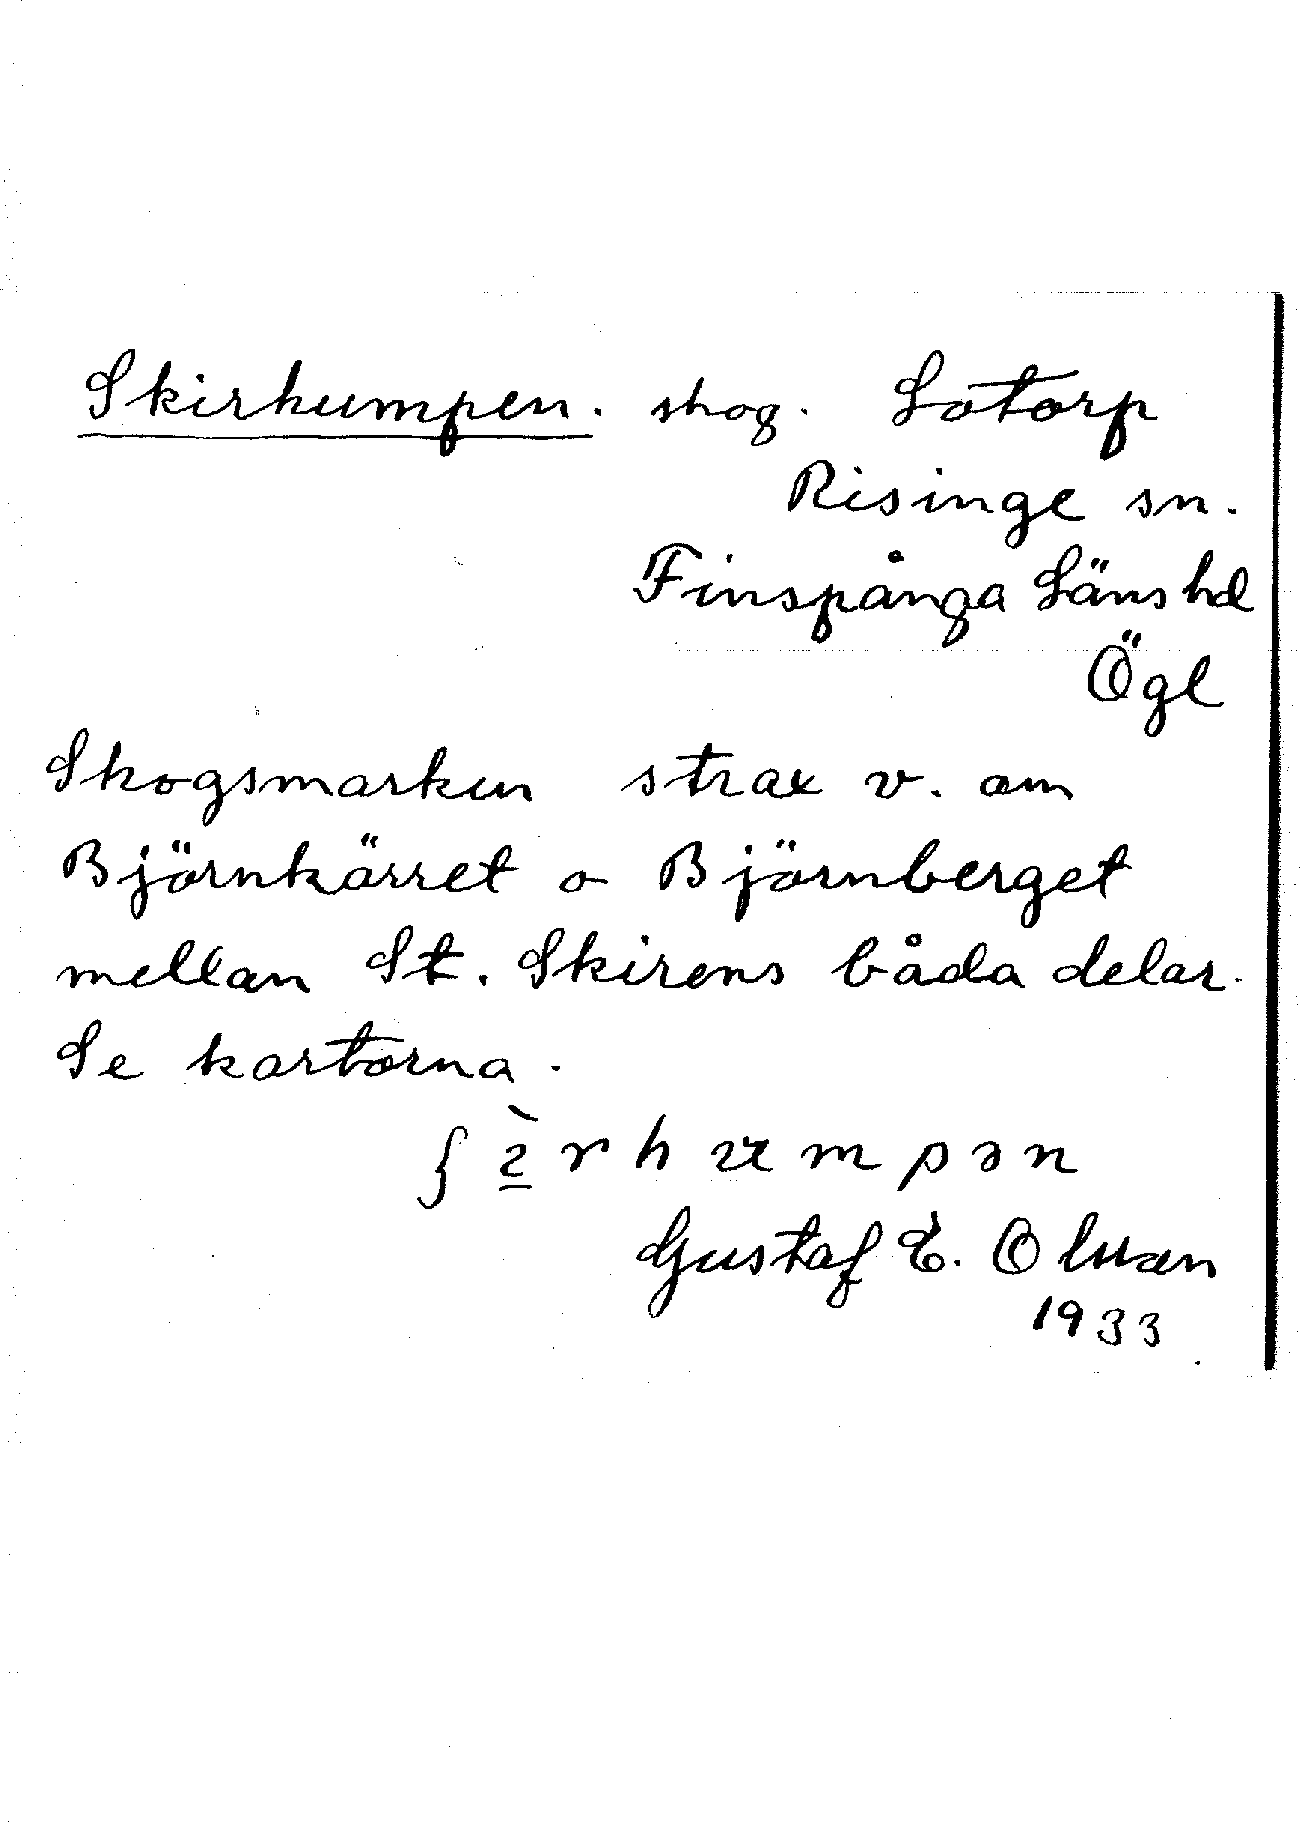 Skirhumpen. skog. Lotorp
Risinge sn.
Finspånga Läns hd
Ögl
Skogsmarken strax v. om
Björnkärret o Björnberget
mellan St. Skirens båda delar.
Se kartorna.
Gustaf E. Olsson
1933